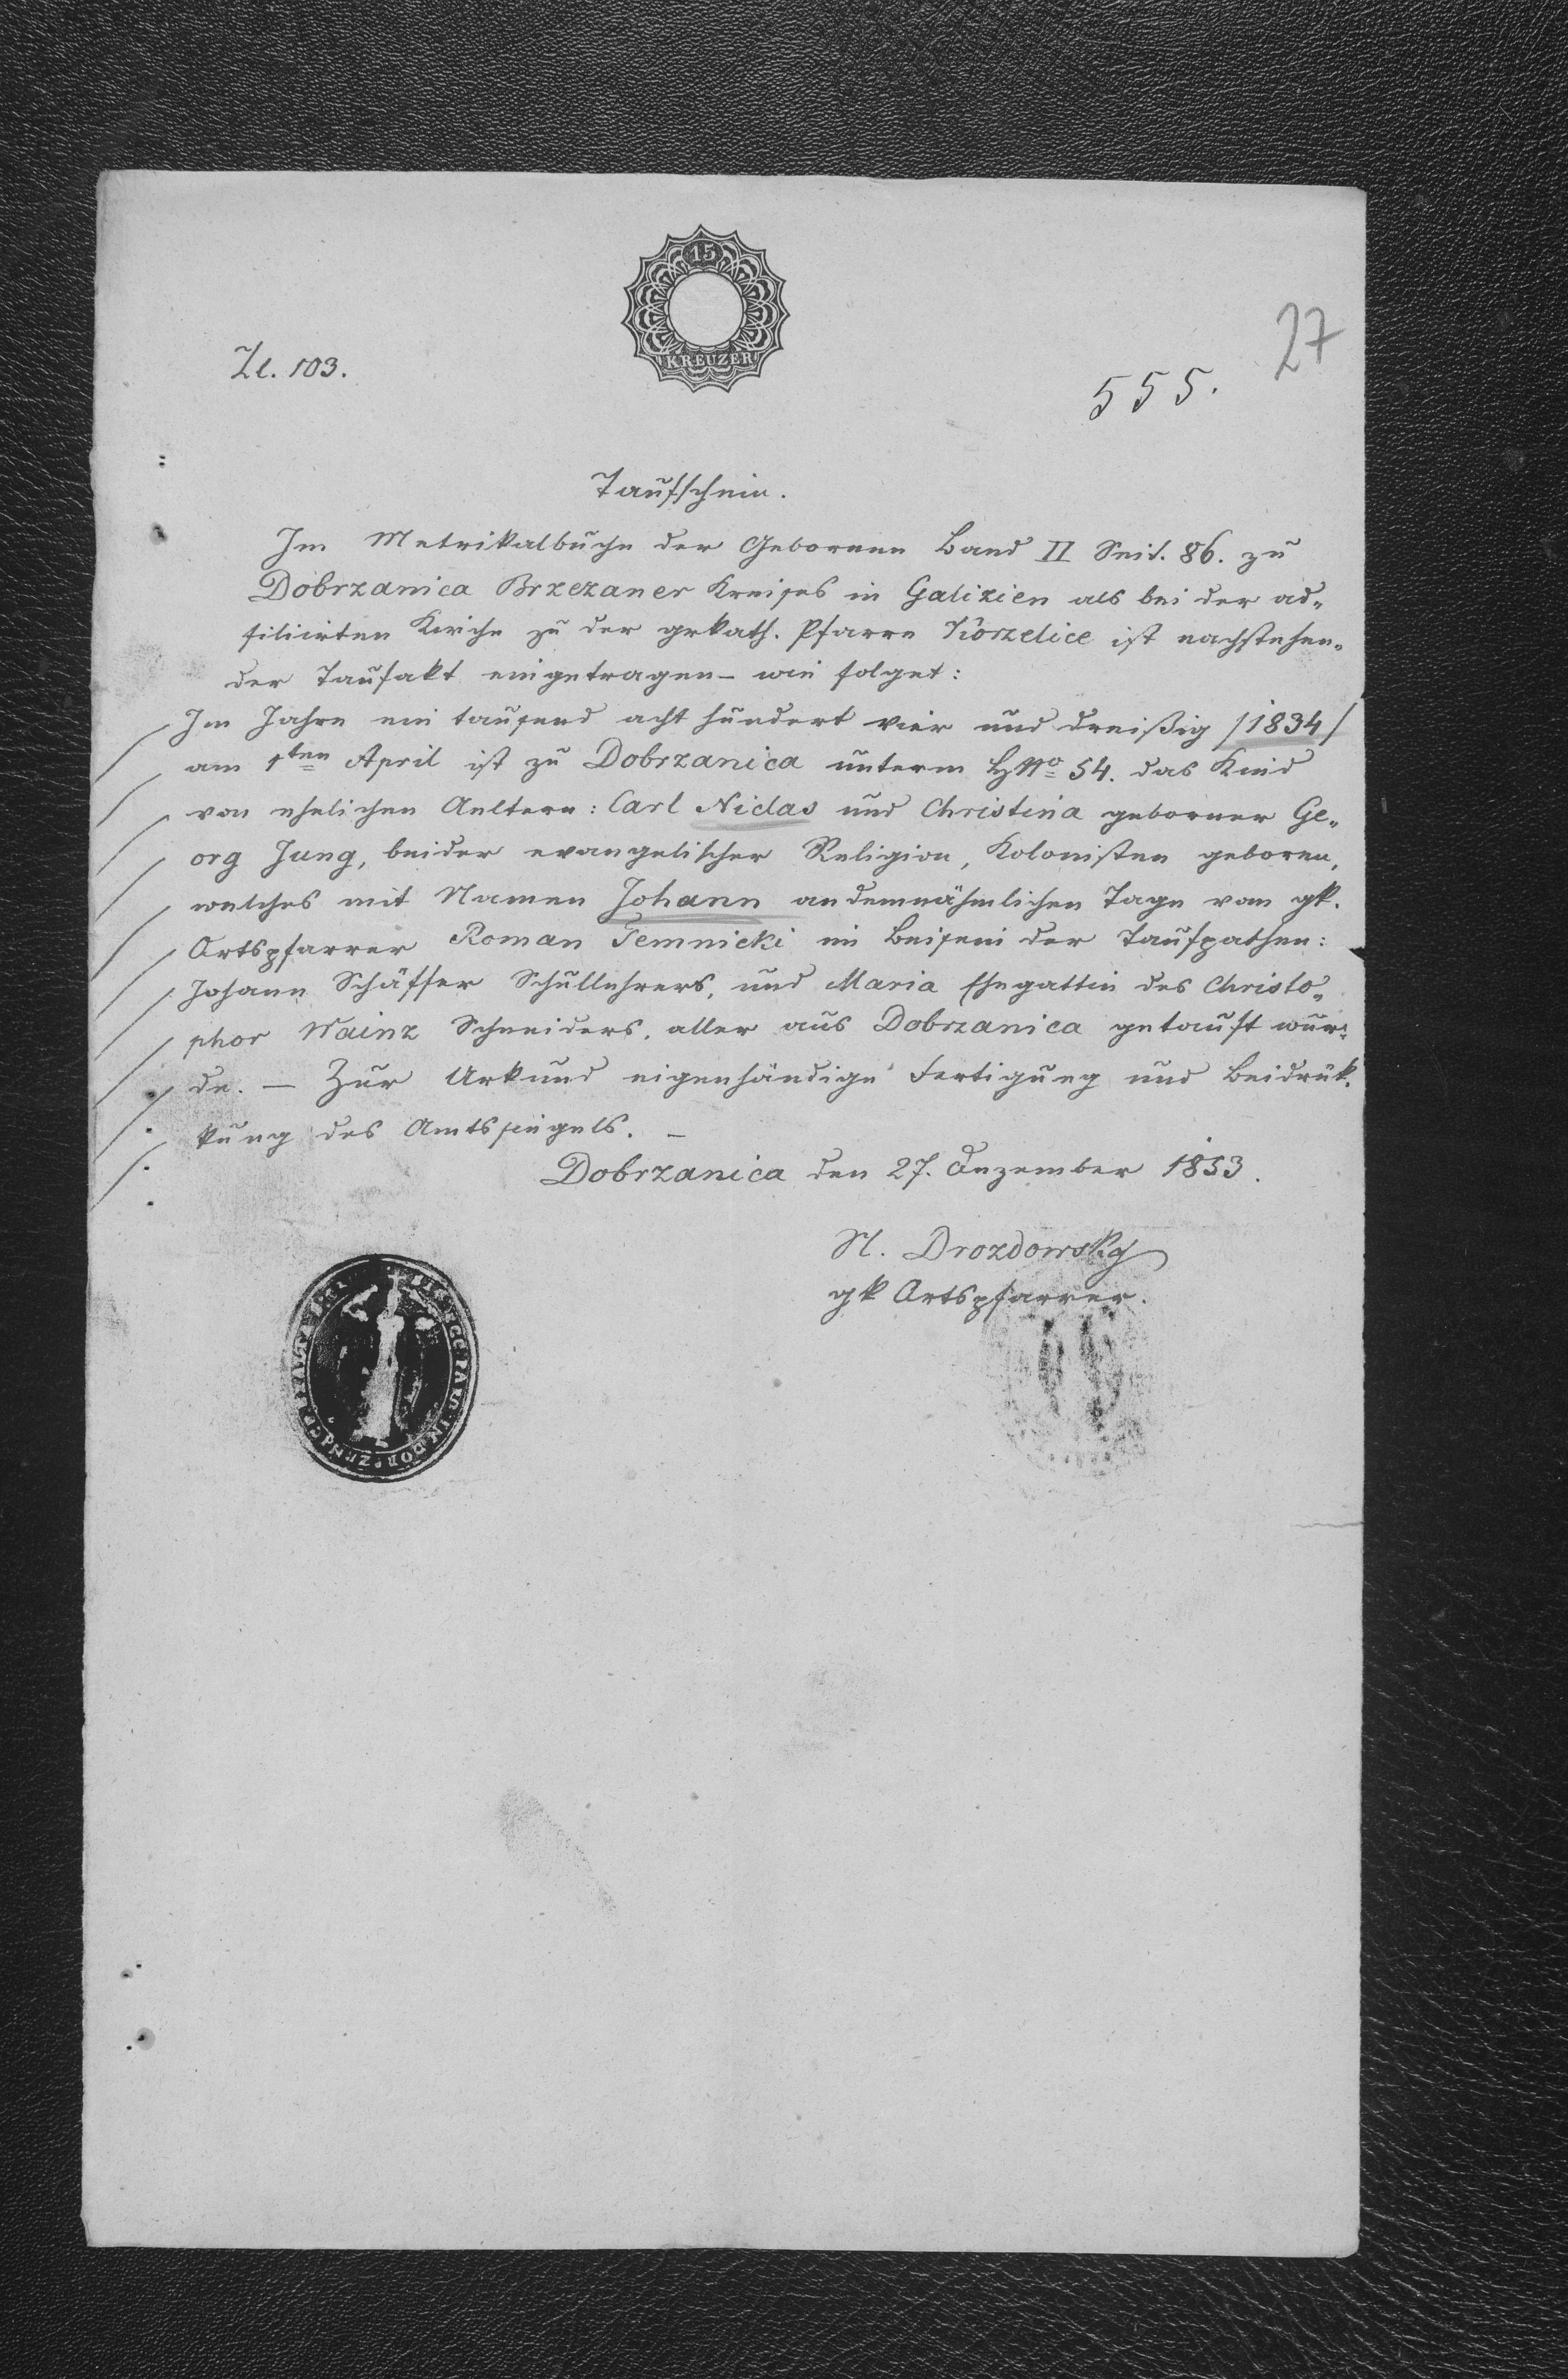 15
KREUZER
27
Zl. 103.
555.
Taufschein.
Im Metrikalbuche der Gebornen Band II Seit. 86. zu
Dobrzanica Brzezaner Kreises in Galizien als bei der ad„
filiirten Kirche zu der grkath. Pfarre Korzelice ist nachstehen„
der Taufakt eingetragen – wie folget:
Im Jahre ein tausend acht hundert vier und dreißig /1834/
am 1ten April ist zu Dobrzanica unterm HNo 54. das Kind
von ehelichen Aeltern: Carl Niclas und Christina geborner Ge„
org Jung, beider evangelischer Religion, Kolonisten geboren,
welches mit Namen Johann an demnähmlichen Tage vom gk.
Ortspfarrer Roman Temnicki im Beisein der Taufpathen:
Johann Schäffer Schullehrers, und Maria Ehegattin des Christo„
phor Wainz Schneiders, aller aus Dobrzanica getauft wur„
de. – Zur Urkund eigenhändige Fertigung und Beidrük„
kung des Amtssiegels. –
Dobrzanica den 27. Dezember 1853.
Drozdowsky
gk Ortspfarrer.